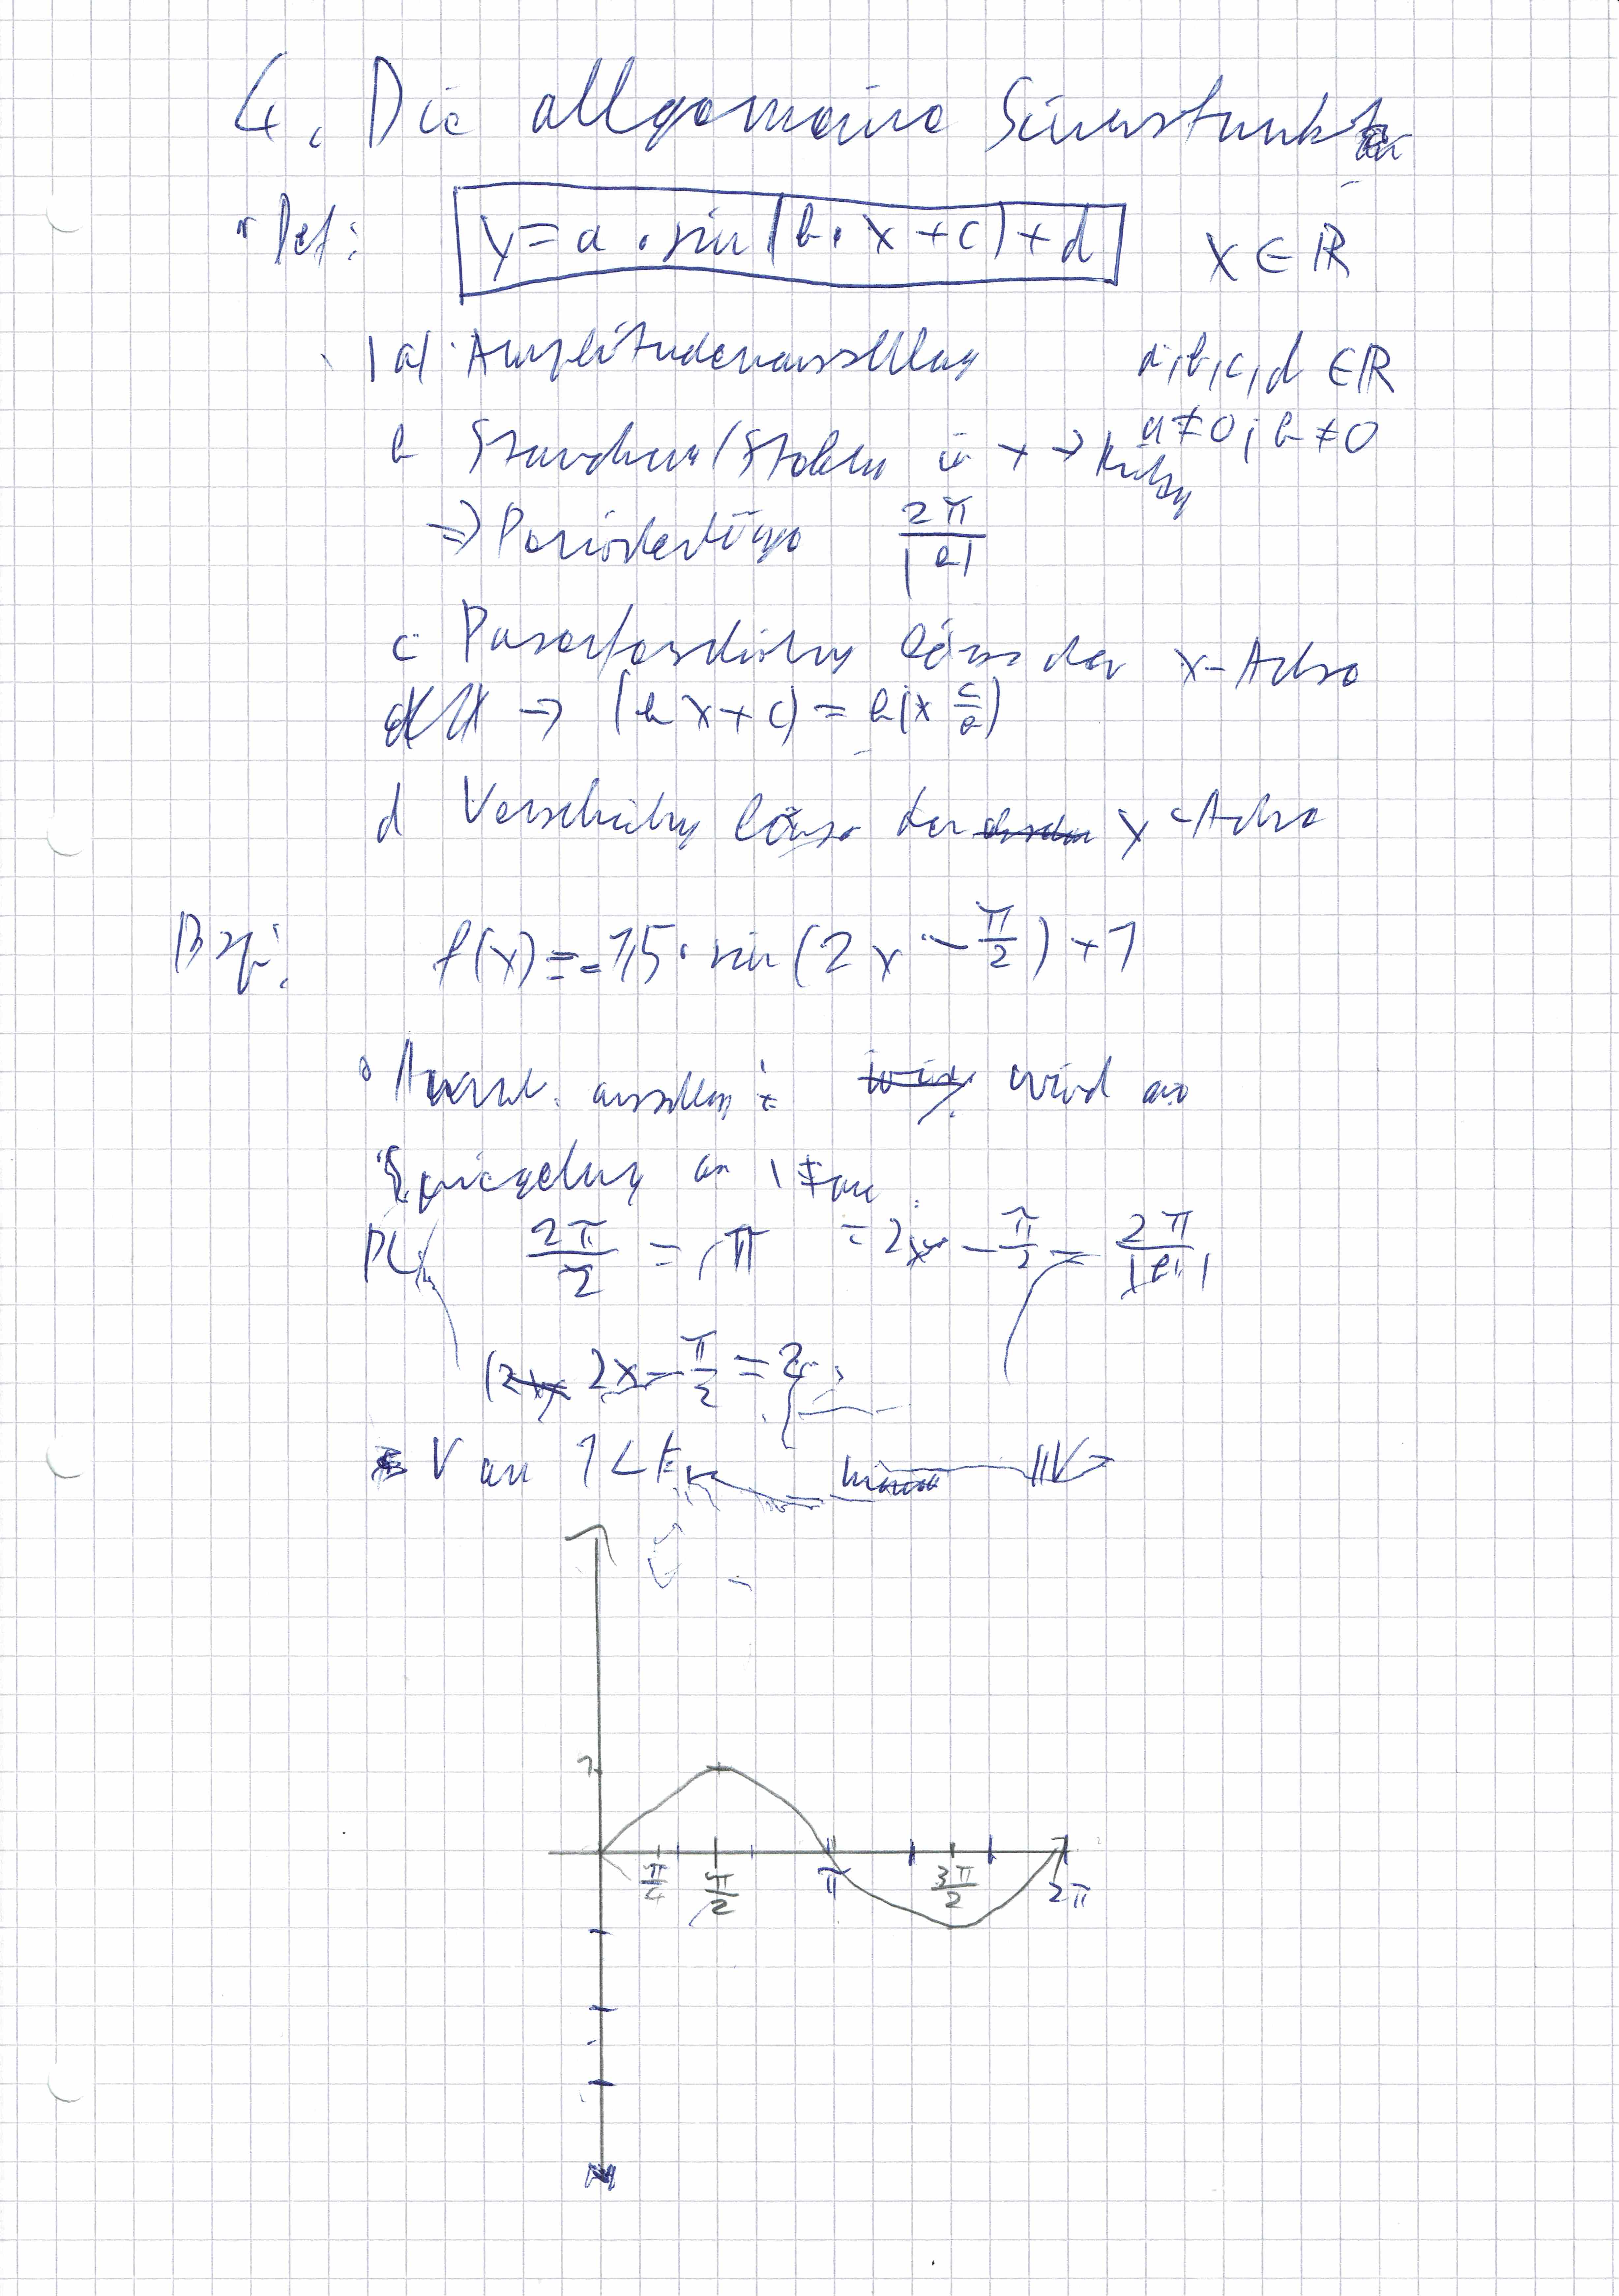 4. Die allgemeine Sinusfunkt
Def: y = a · sin(b · x + c) + d x ∈ ℝ
|a| Amplitudenausschlag a, b, c, d ∈ ℝ
b Stauchung/Streckung in x → a ≠ 0; b ≠ 0
⇒ Periodenlänge 2π/|b|
c Phasenverschiebung längs der x-Achse
→ (bx + c) = b(x c/b)
d Verschiebung längs der y-Achse
Bsp: f(x) = -1,5 · sin(2x - π/2) + 1
wird an
Spiegelung an
PL 2π/2 = π = 2x - π/2 = 2π/|b|
2x - π/2 = 2
V um 1 LE
1
π/4 π/2 π 3π/2 2π